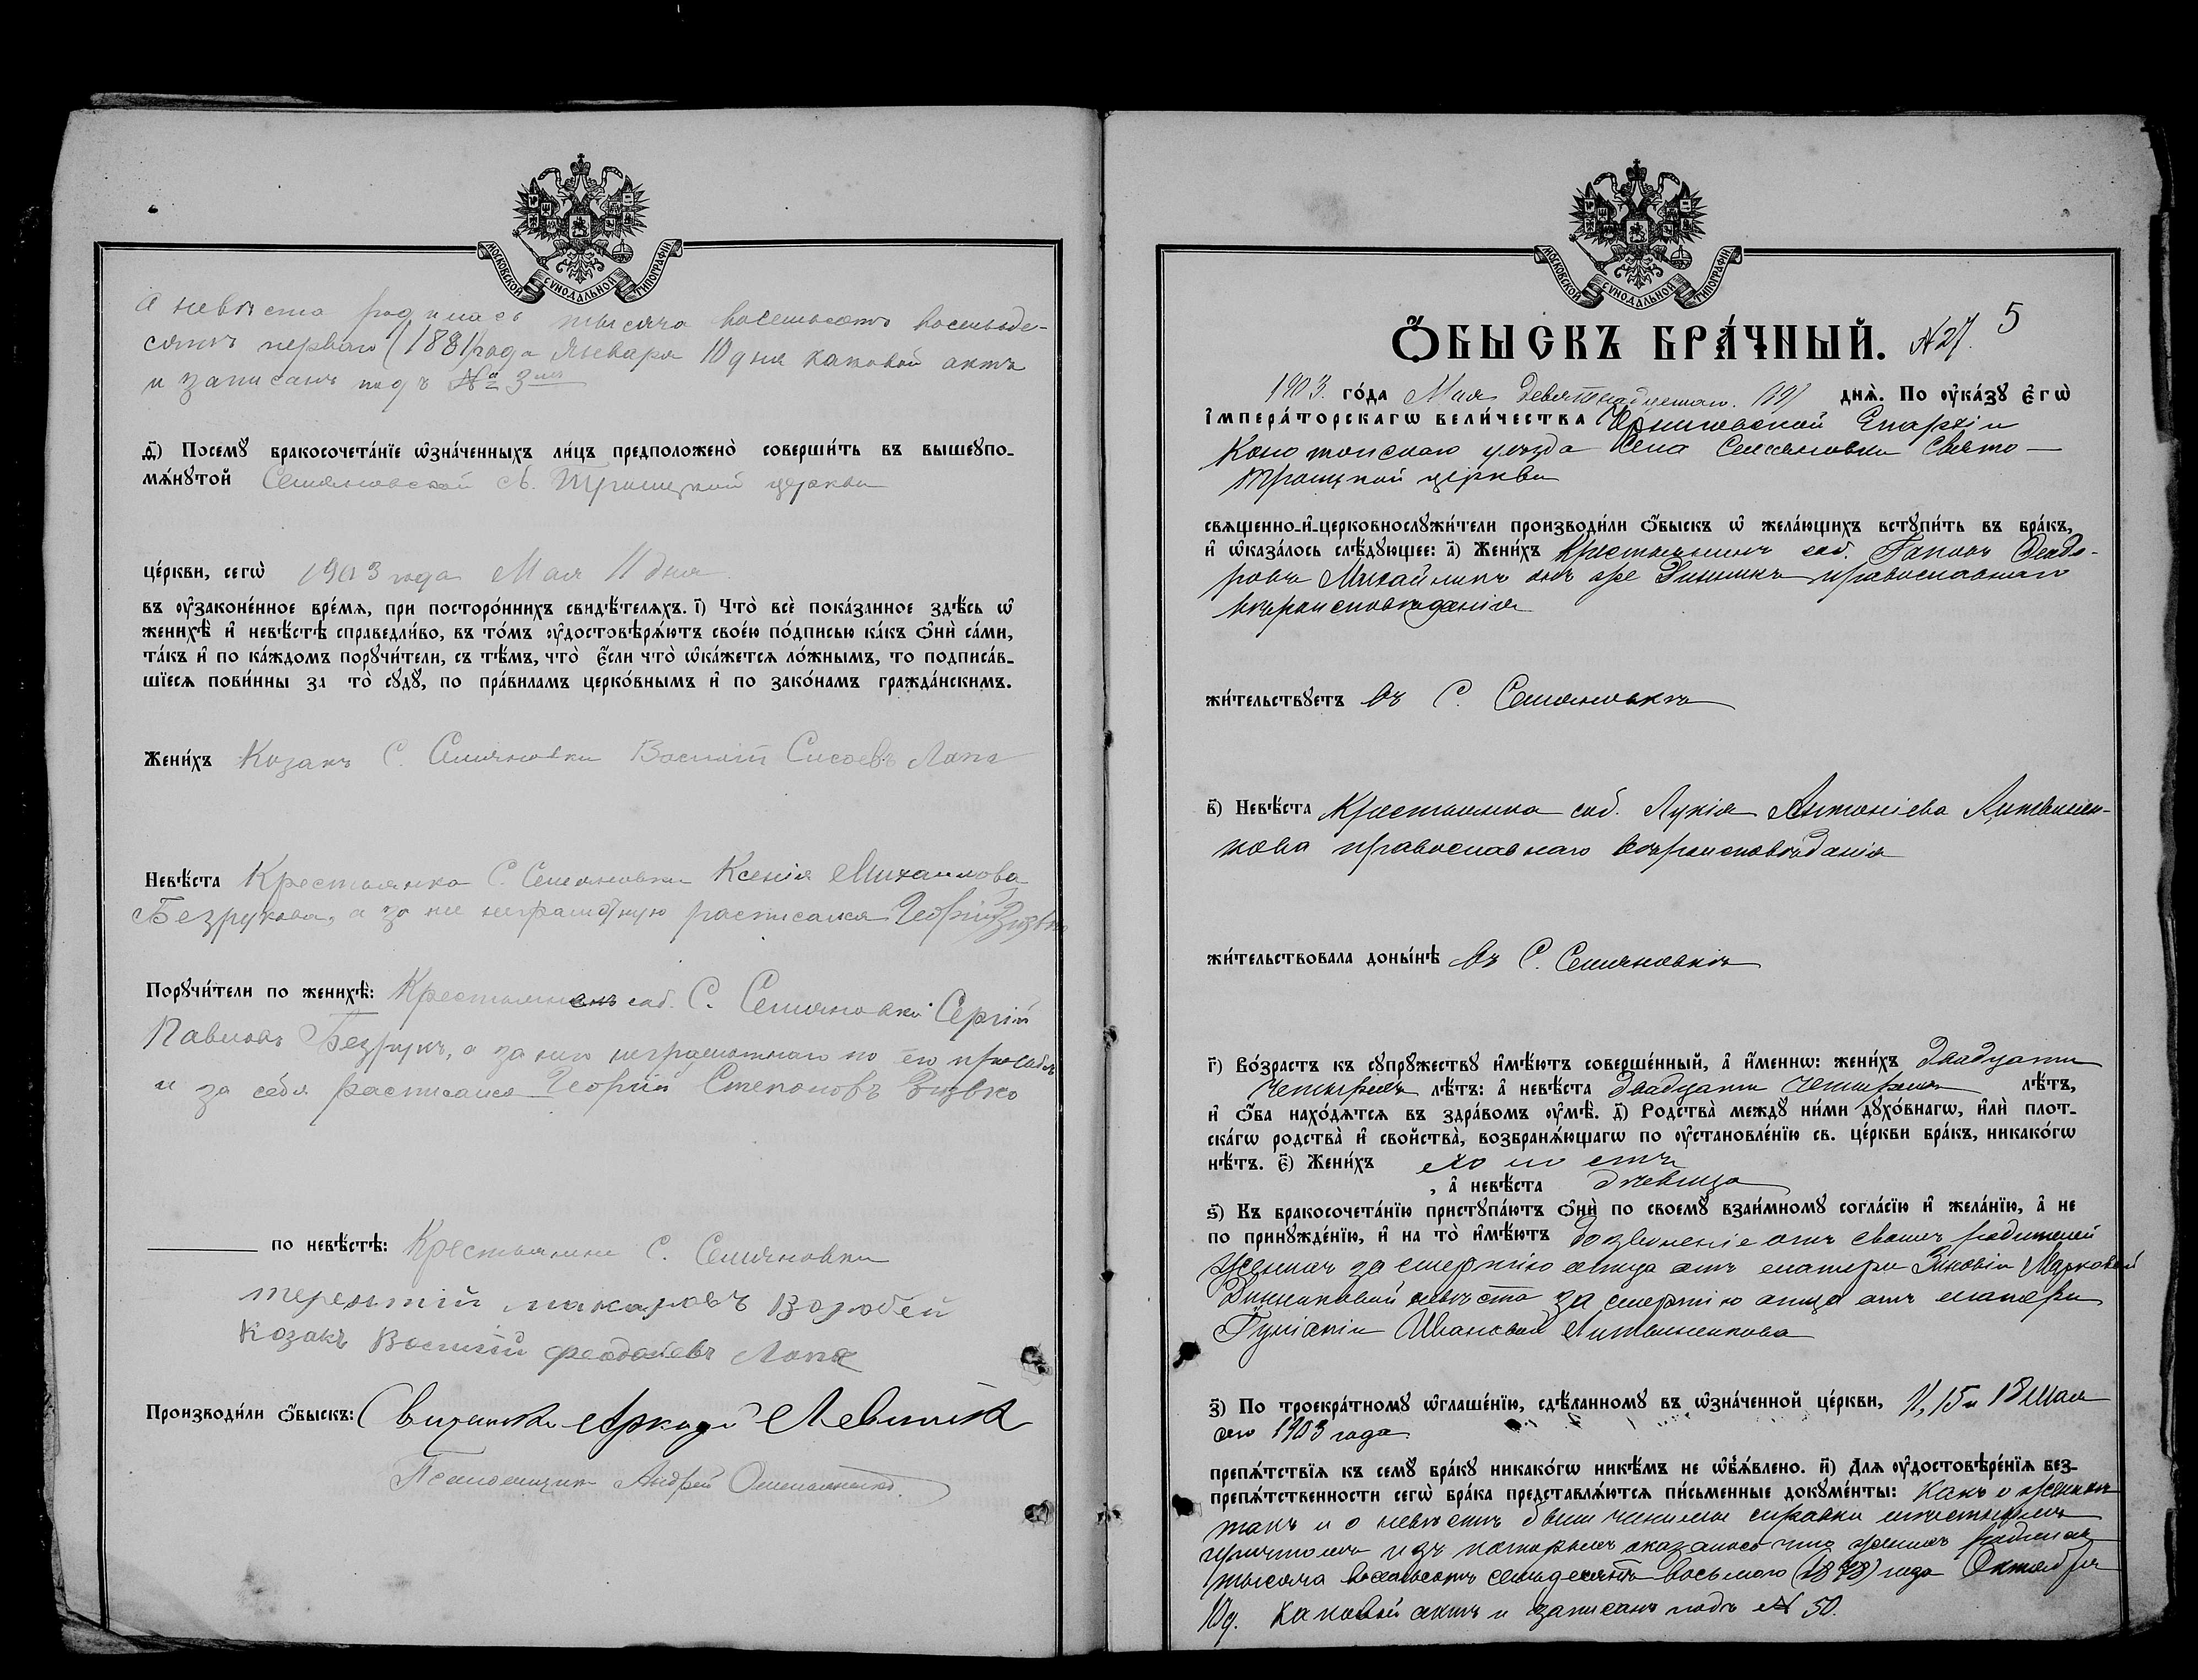 МОСКОВСКОЙ СѴНОДАЛЬНОЙ ТИПОГРАФІИ
А невѣста родилась тысяча восемьсотъ восемьде-
сятъ перваго (1881) года Января 10 дня каковой актъ
и записанъ подъ № 3
д҃і) Посемꙋ бракосочета́нїе ѡзна́ченныхъ ли́цъ предположено̀ соверши́ть въ вышеꙋпо-
мѧ́нꙋтой Семяновской Св. Троицкой церкви
це́ркви, сегѡ̀ 1903 года Мая 11 дня
въ ᲂу҆законе́нное вре́мѧ, при посторо́ннихъ свидѣ́телѧхъ. і҃) Что̀ всѐ пока́занное здѣ́сь ѡ҆
женихѣ̀ и҆ невѣ́стѣ справедли́во, въ то́мъ ᲂу҆достовѣрѧ́ютъ свое́ю по́дписью ка́къ ѻ҆нѝ са́ми,
та́къ и҆ по ка́ждомъ порꙋчи́тели, съ тѣ́мъ, что̀ є҆́сли что̀ ѡ҆ка́жетсѧ ло́жнымъ, то подписа́в-
шїесѧ пови́нны за то̀ сꙋдꙋ̀, по пра́виламъ церко́внымъ и҆ по зако́намъ гражда́нскимъ.
Жени́хъ Козакъ С. Семяновки Василій Сисоевъ Лапа
Невѣ́ста Крестьянка С. Семяновки Ксенія Михаилова
Безрукова, а за нее неграмотную расписался Георгій Визвко
Порꙋчи́тели по женихѣ̀: Крестьянинъ соб. С. Семяновки Сергій
Павловъ Безрукъ, а за него неграмотнаго по его просьбѣ
и за себя расписался Георгій Степановъ Визвко
по невѣ́стѣ: Крестьянинъ С. Семяновки
терентій макаровъ Воробей
Козакъ Василій феодосіевъ Лапа
Производи́ли ѻ҆́быскъ: Священникъ Аркадій Левицкій
Псаломщикъ Андрей
МОСКОВСКОЙ СѴНОДАЛЬНОЙ ТИПОГРАФІИ
Ѻ҆́БЫСКЪ БРА́ЧНЫЙ. №27. 5
1903. го́да Мая девятнадцатаго. (19) днѧ̀. По ᲂу҆ка́зꙋ є҆гѡ̀
і҆мпера́торскагѡ вели́чества Черниговской Епархіи
Конотопскаго уѣзда Села Семяновки Свято-
Троицкой церкви
свѧщенно-и҆-церковнослꙋжи́тели производи́ли ѻ҆́быскъ ѡ҆ жела́ющихъ встꙋпи́ть въ бра́къ,
и҆ ѡ҆каза́лось слѣ́дꙋющее: а҃) Жени́хъ Крестьянинъ соб. Гаповъ Феодо-
ровъ Михайликъ онъ же Динникъ православнаго
вѣроисповѣданія
жи́тельствꙋетъ въ С. Семяновкѣ
в҃) Невѣ́ста Крестьянка соб. Лукія Антоніева Литвинен-
кова православнаго вѣроисповѣданія
жи́тельствовала доны́нѣ въ С. Семяновкѣ
г҃) Во́зрастъ къ сꙋпрꙋ́жествꙋ и҆мѣ́ютъ соверше́нный, а҆ и҆́менно: жени́хъ двадцати
четырехъ лѣ́тъ: а҆ невѣ́ста двадцати четырехъ лѣ́тъ,
и҆ ѻ҆́ба нахо́дѧтсѧ въ здра́вомъ ᲂу҆мѣ̀. д҃) Родства̀ междꙋ̀ ни́ми дꙋхо́внагѡ, и҆лѝ плот-
ска́гѡ родства̀ и҆ сво́йства, возбранѧ́ющагѡ по ᲂу҆становле́нїю св. це́ркви бра́къ, никако́гѡ
нѣ́тъ. є҃) Жени́хъ холостъ
, а҆ невѣ́ста дѣвица
ѕ҃) Къ бракосочета́нїю пристꙋпа́ютъ ѻ҆нѝ по своемꙋ̀ взаи́мномꙋ согла́сїю и҆ жела́нїю, а҆ не
по принꙋжде́нїю, и҆ на то̀ и҆мѣ́ютъ дозволеніе отъ своихъ родителей
Женихъ за смертію отца отъ матери Зиновіи Марковой
Динниковой невѣста за смертію отца отъ матери
Гликеріи Ивановой Литвиненкова
з҃) По троекра́тномꙋ ѡ҆глаше́нїю, сдѣ́ланномꙋ въ ѡ҆зна́ченной це́ркви, 11, 15 и 18 Мая
сего 1903 года.
препѧ́тствїѧ къ семꙋ̀ бра́кꙋ никако́гѡ никѣ́мъ не ѡ҆б̾ѧ́влено. и҃) Длѧ̀ ᲂу҆достовѣре́нїѧ без-
препѧ́тственности сегѡ̀ бра́ка представлѧ́ютсѧ пи́сьменные докꙋме́нты: Какъ о женихѣ
такъ и о невѣстѣ были чинимы справки мѣстнымъ
причтомъ изъ которыхъ оказалось что женихъ родился
тысяча восемьсотъ семьдесятъ восьмого (1878) года Октября
10 д. каковой актъ и записанъ подъ № 50.